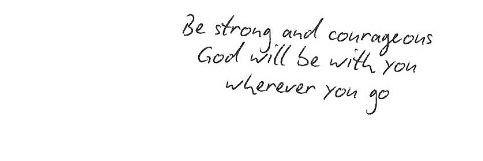 Be strong and courageous
God will be with you
wherever you go